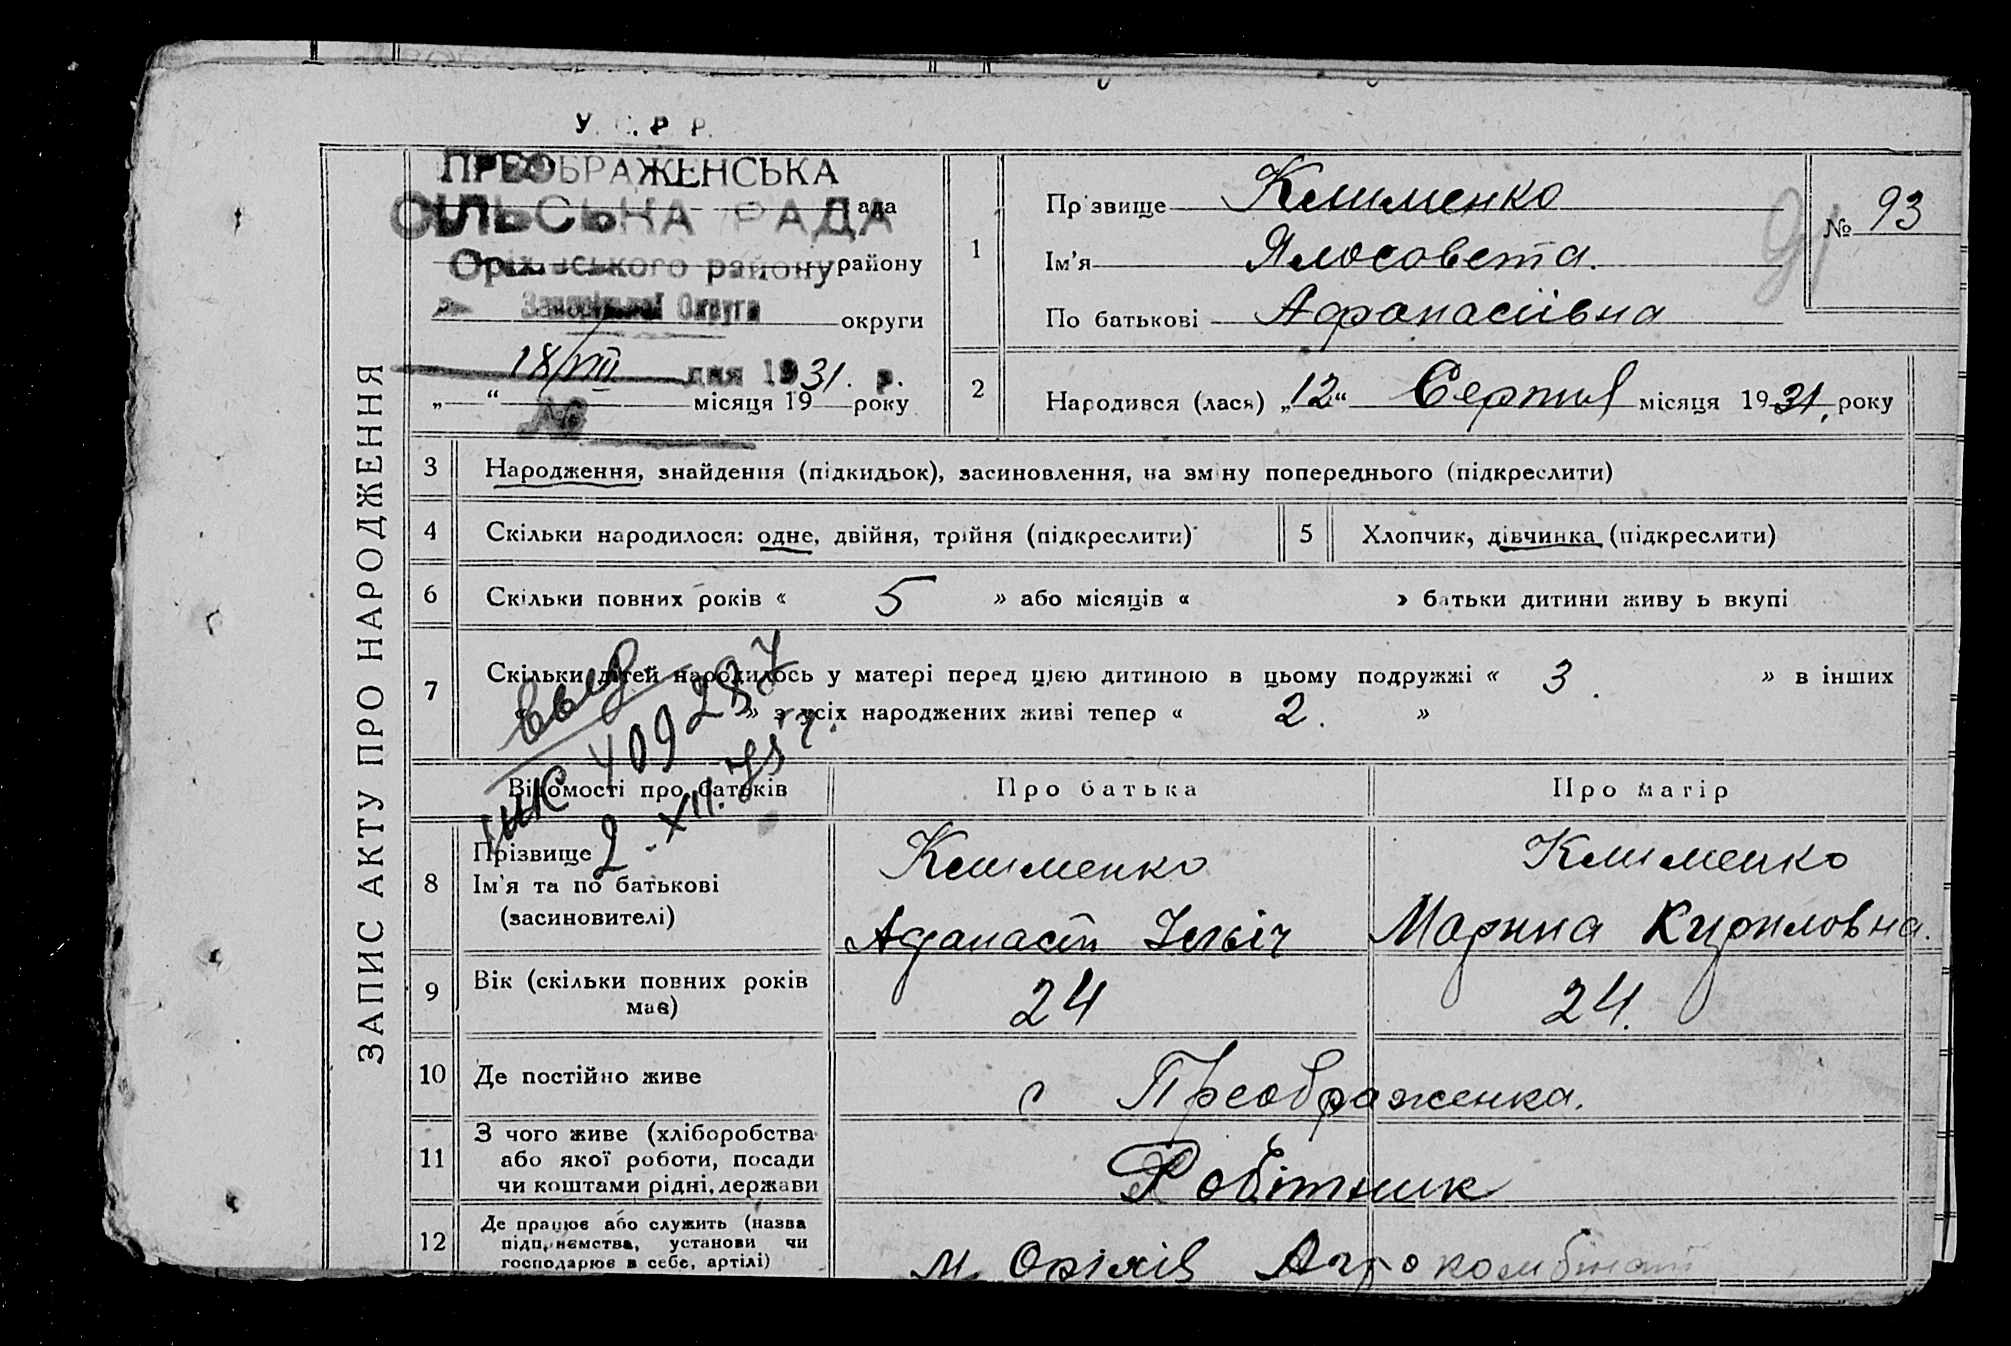 У. С. Р. Р.
ПРЕОБРАЖЕНСЬКА
СІЛЬСЬКА РАДА
Оріхівського району району
Запорізької Округи
округи
18/VIII дня 1931. р.
„ “ місяця 19 року
№
ЗАПИС АКТУ ПРО НАРОДЖЕННЯ
1
Прізвище Клименко
Ім'я Ялосовета.
По батькові Афанасіівна
№ 93
91
2
Народився (лася) „12“ Серпня місяця 1931. року
3 Народження, знайдення (підкидьок), засиновлення, на зміну попереднього (підкреслити)
4 Скільки народилося: одне, двійня, трійня (підкреслити)
5 Хлопчик, дівчинка (підкреслити)
6 Скільки повних років « 5 » або місяців « » батьки дитини живуть вкупі
7 Скільки дітей народилось у матері перед цією дитиною в цьому подружжі « 3. » в інших
» з усіх народжених живі тепер « 2. »
409287
2. XII. 75 г.
Відомості про батьків
Про батька
Про матір
8 Прізвище
Ім'я та по батькові
(засиновителі)
Клименко
Афанасій Ільвіч
Клименко
Марина Куриловна.
9 Вік (скільки повних років
має)
24
24.
10 Де постійно живе
с Преображенка.
11 З чого живе (хліборобства
або якої роботи, посади
чи коштами рідні, держави
Робітник
12 Де працює або служить (назва
підприємства, установи чи
господарює в себе, артілі)
м. Оріхів Агрокомбінат